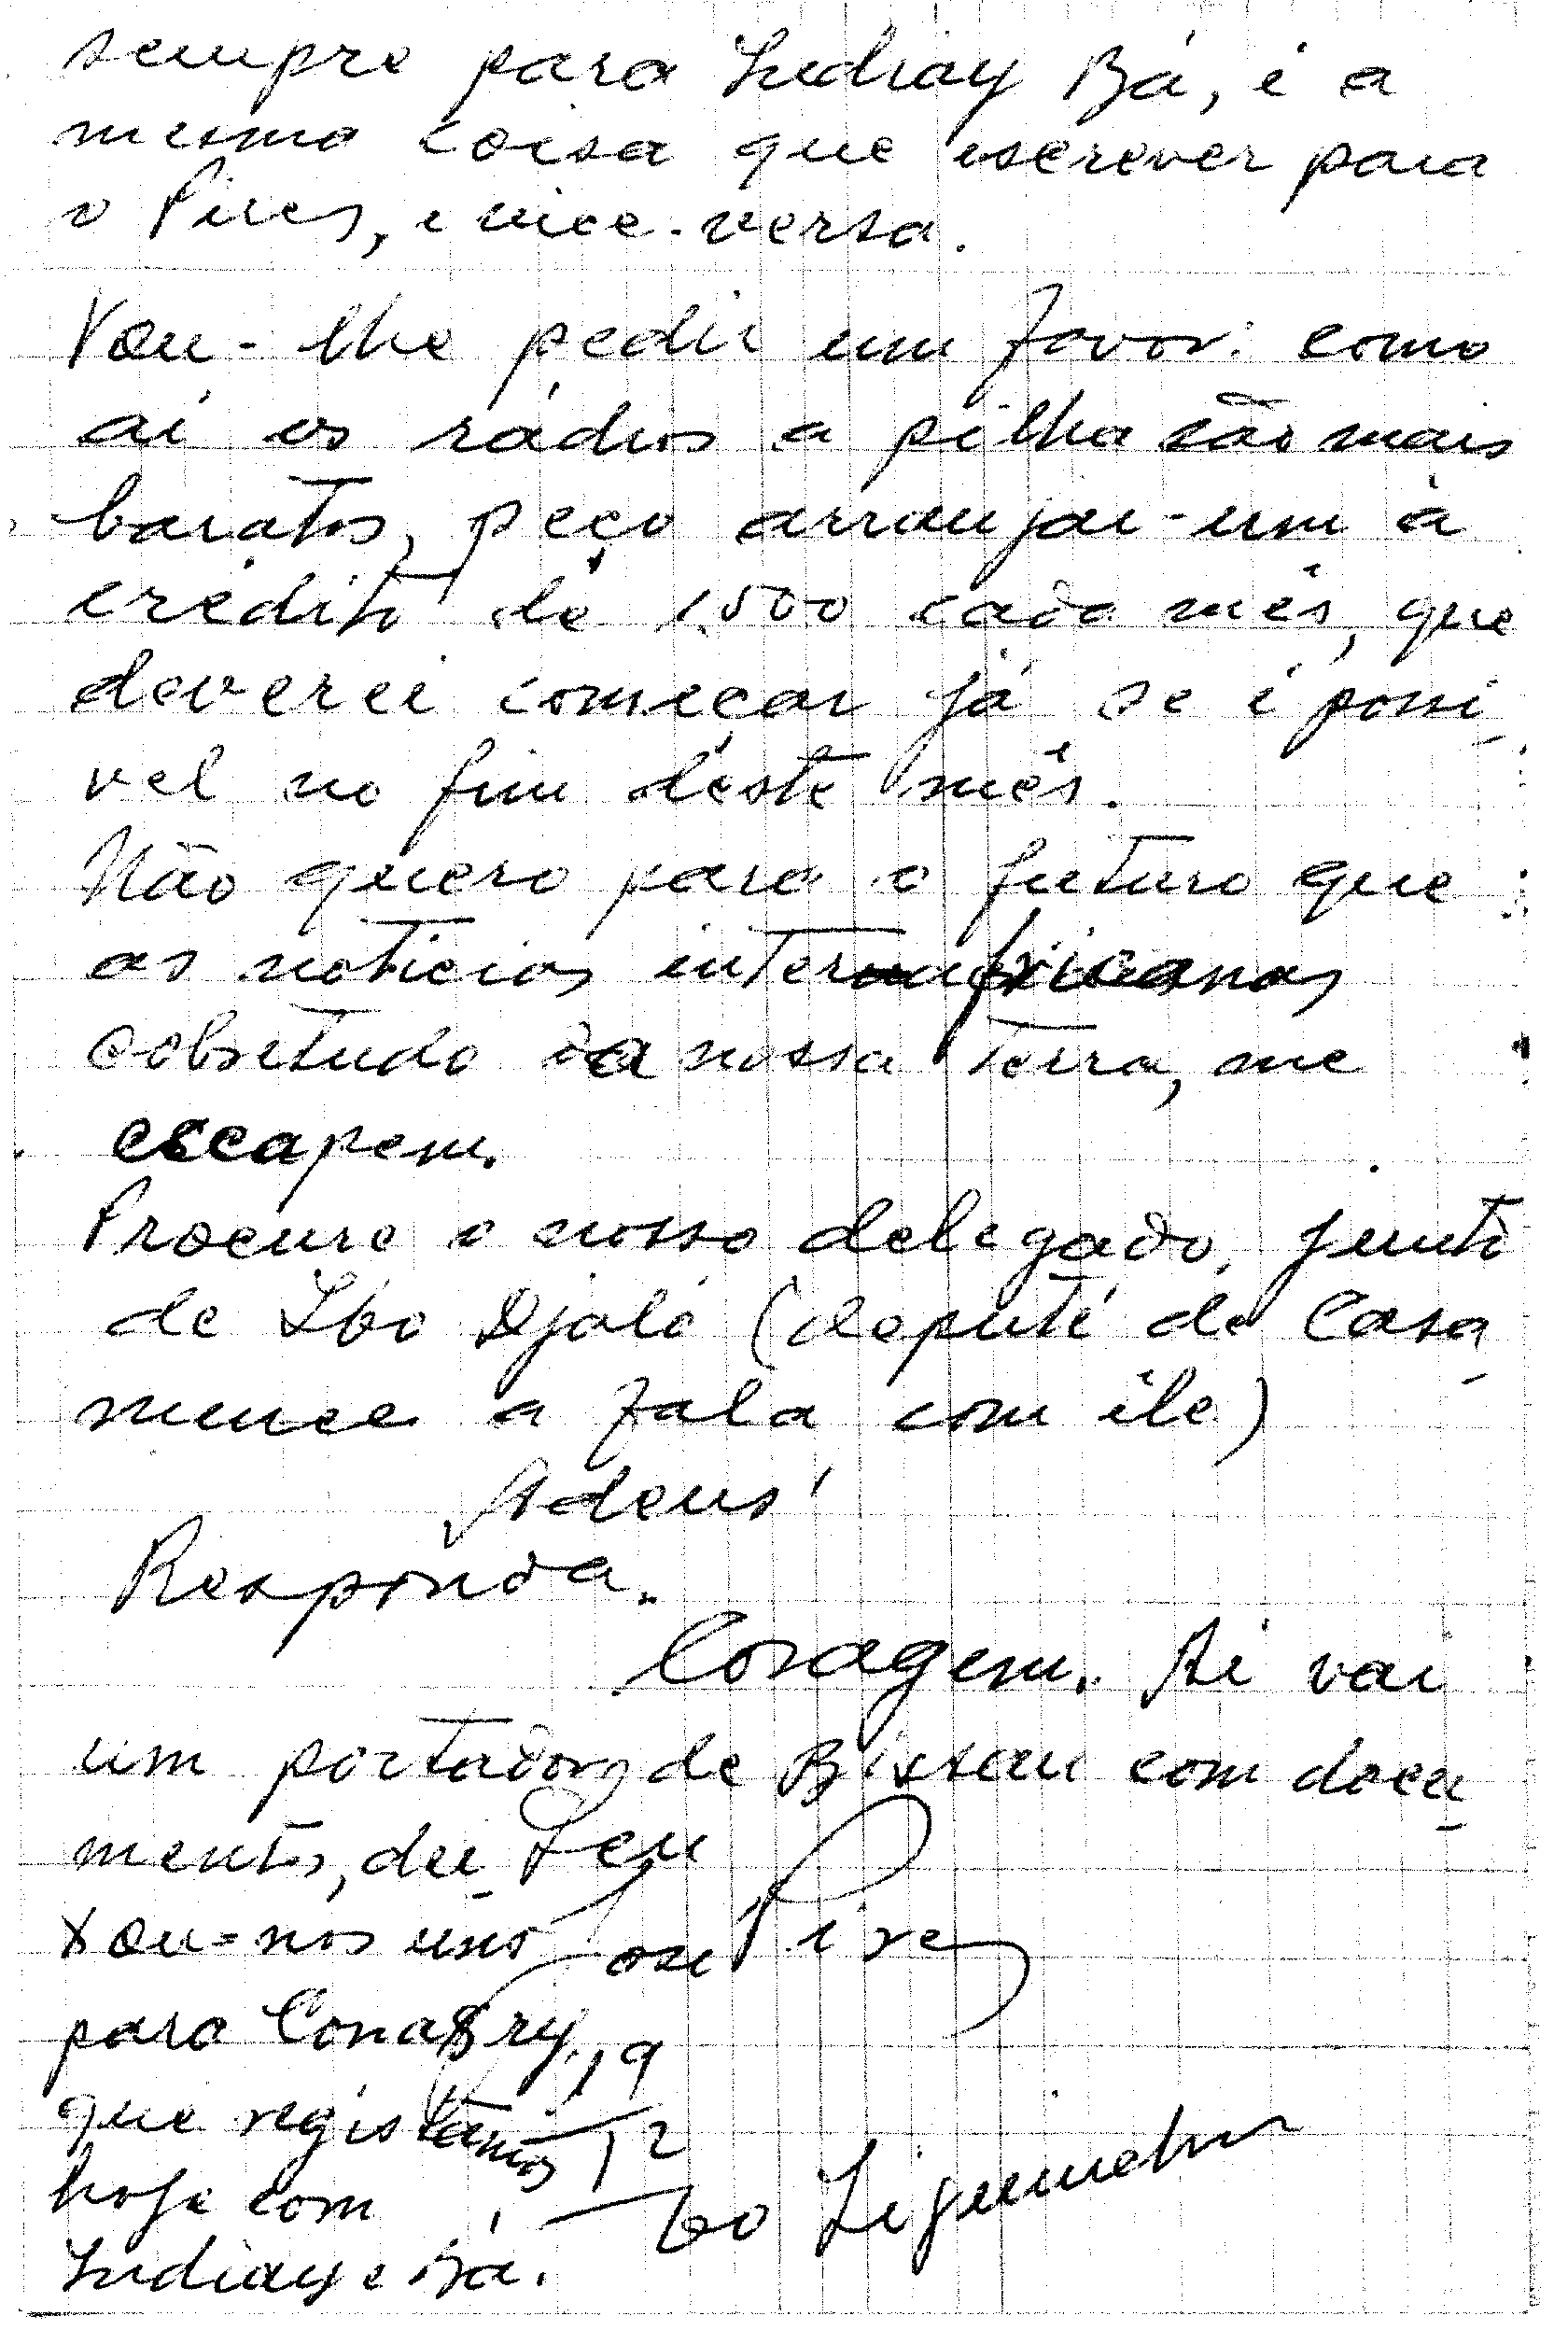 sempre para Indiay Bá, é a
mesma coisa que escrever para
o Pires, e vice-versa.
Vou-lhe pedir um favor: como
aí os rádios a pilha são mais
baratos, peço arranjar-um à
crédito de 1.500 cada mês, que
deverei começar já se é possi
vel no fim dêste mês.
Não quero para o futuro que
as noticias interafricanas
sobretudo da nossa terra, me
escapem.
Procure o nosso delegado, junto
de Ibo Djaló (deputé de Casa
mence a fala com êle)
Adeus!
Responda.
Coragem. Aí vai
um portador de Bissau com docu
mentos, dei
xou-nos uns
Seu
ou Pires
para Conakry,
que registámos
hoje com
Indiay e Bá.
19
12
60 Ziguinchor